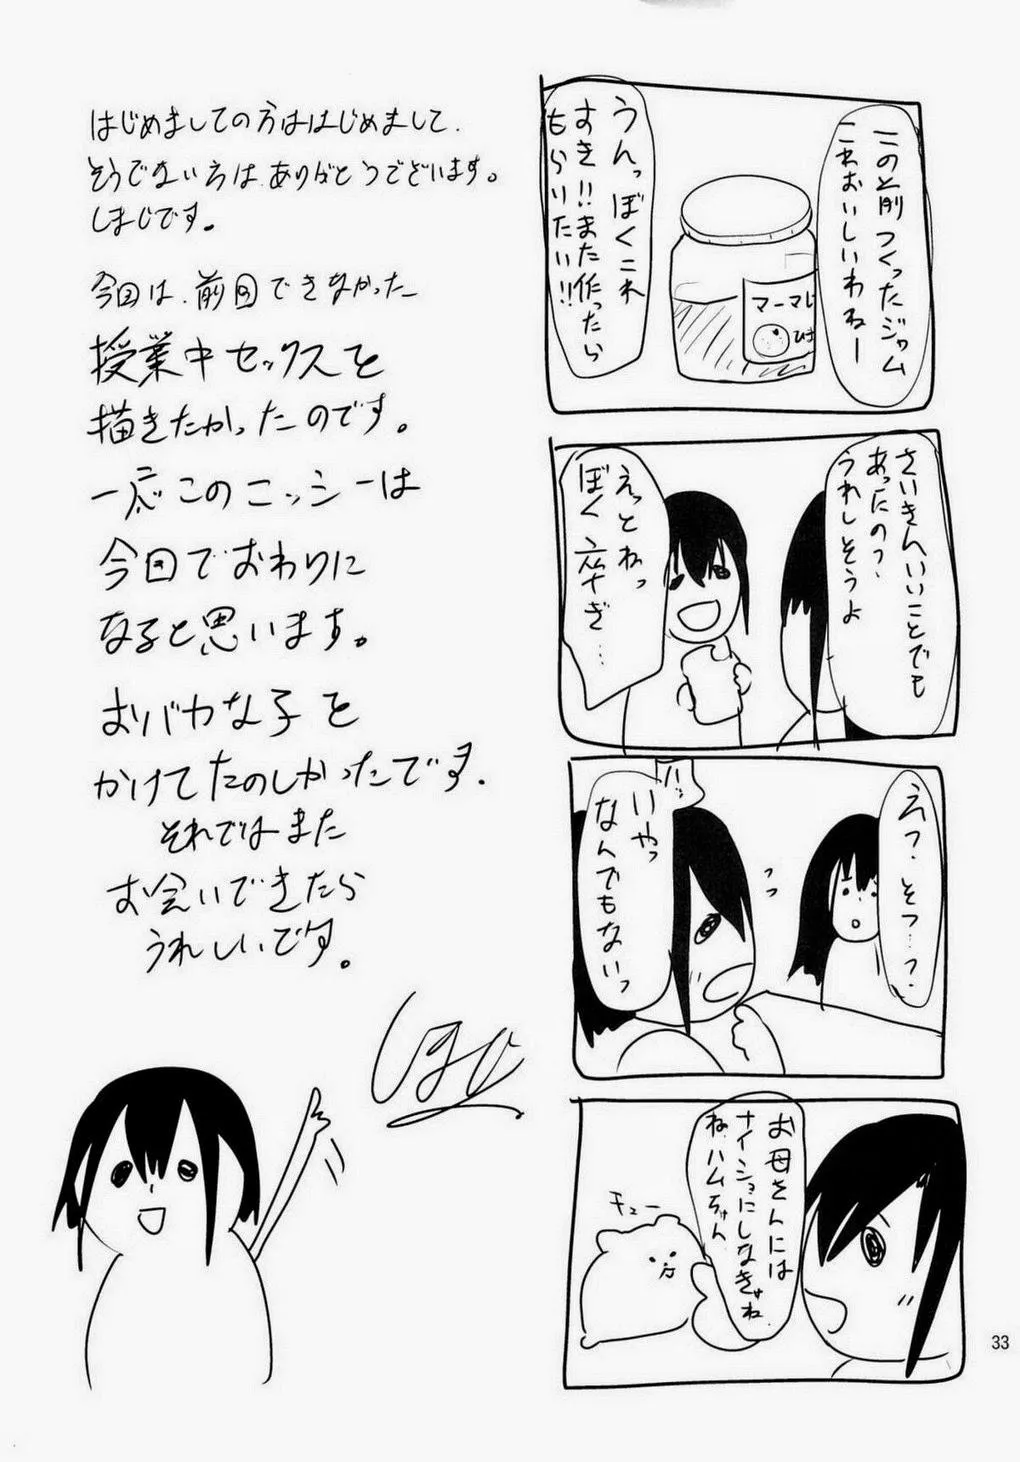 この前つくったジャム
これおいしいわねー
うんっぼくこれ
すき!!また作ったら
もらいたい!!
マーマレ
さいきんいいことでも
あったの?
うれしそうよ
えっとねっ
ぼく卒ぎ…
えっ、そつ…?
いやっ
なんでもないっ
お母さんには
ナイショにしなきゃね
ね、ハムちゃん
チュー
はじめましての方ははじめまして、
そうでない方は、ありがとうございます。
しまじです。
今回は、前回できなかった
授業中セックスを
描きたかったのです。
一応このニッシーは
今回でおわりに
なると思います。
おバカな子を
かけてたのしかったです。
それではまた
お会いできたら
うれしいです。
33